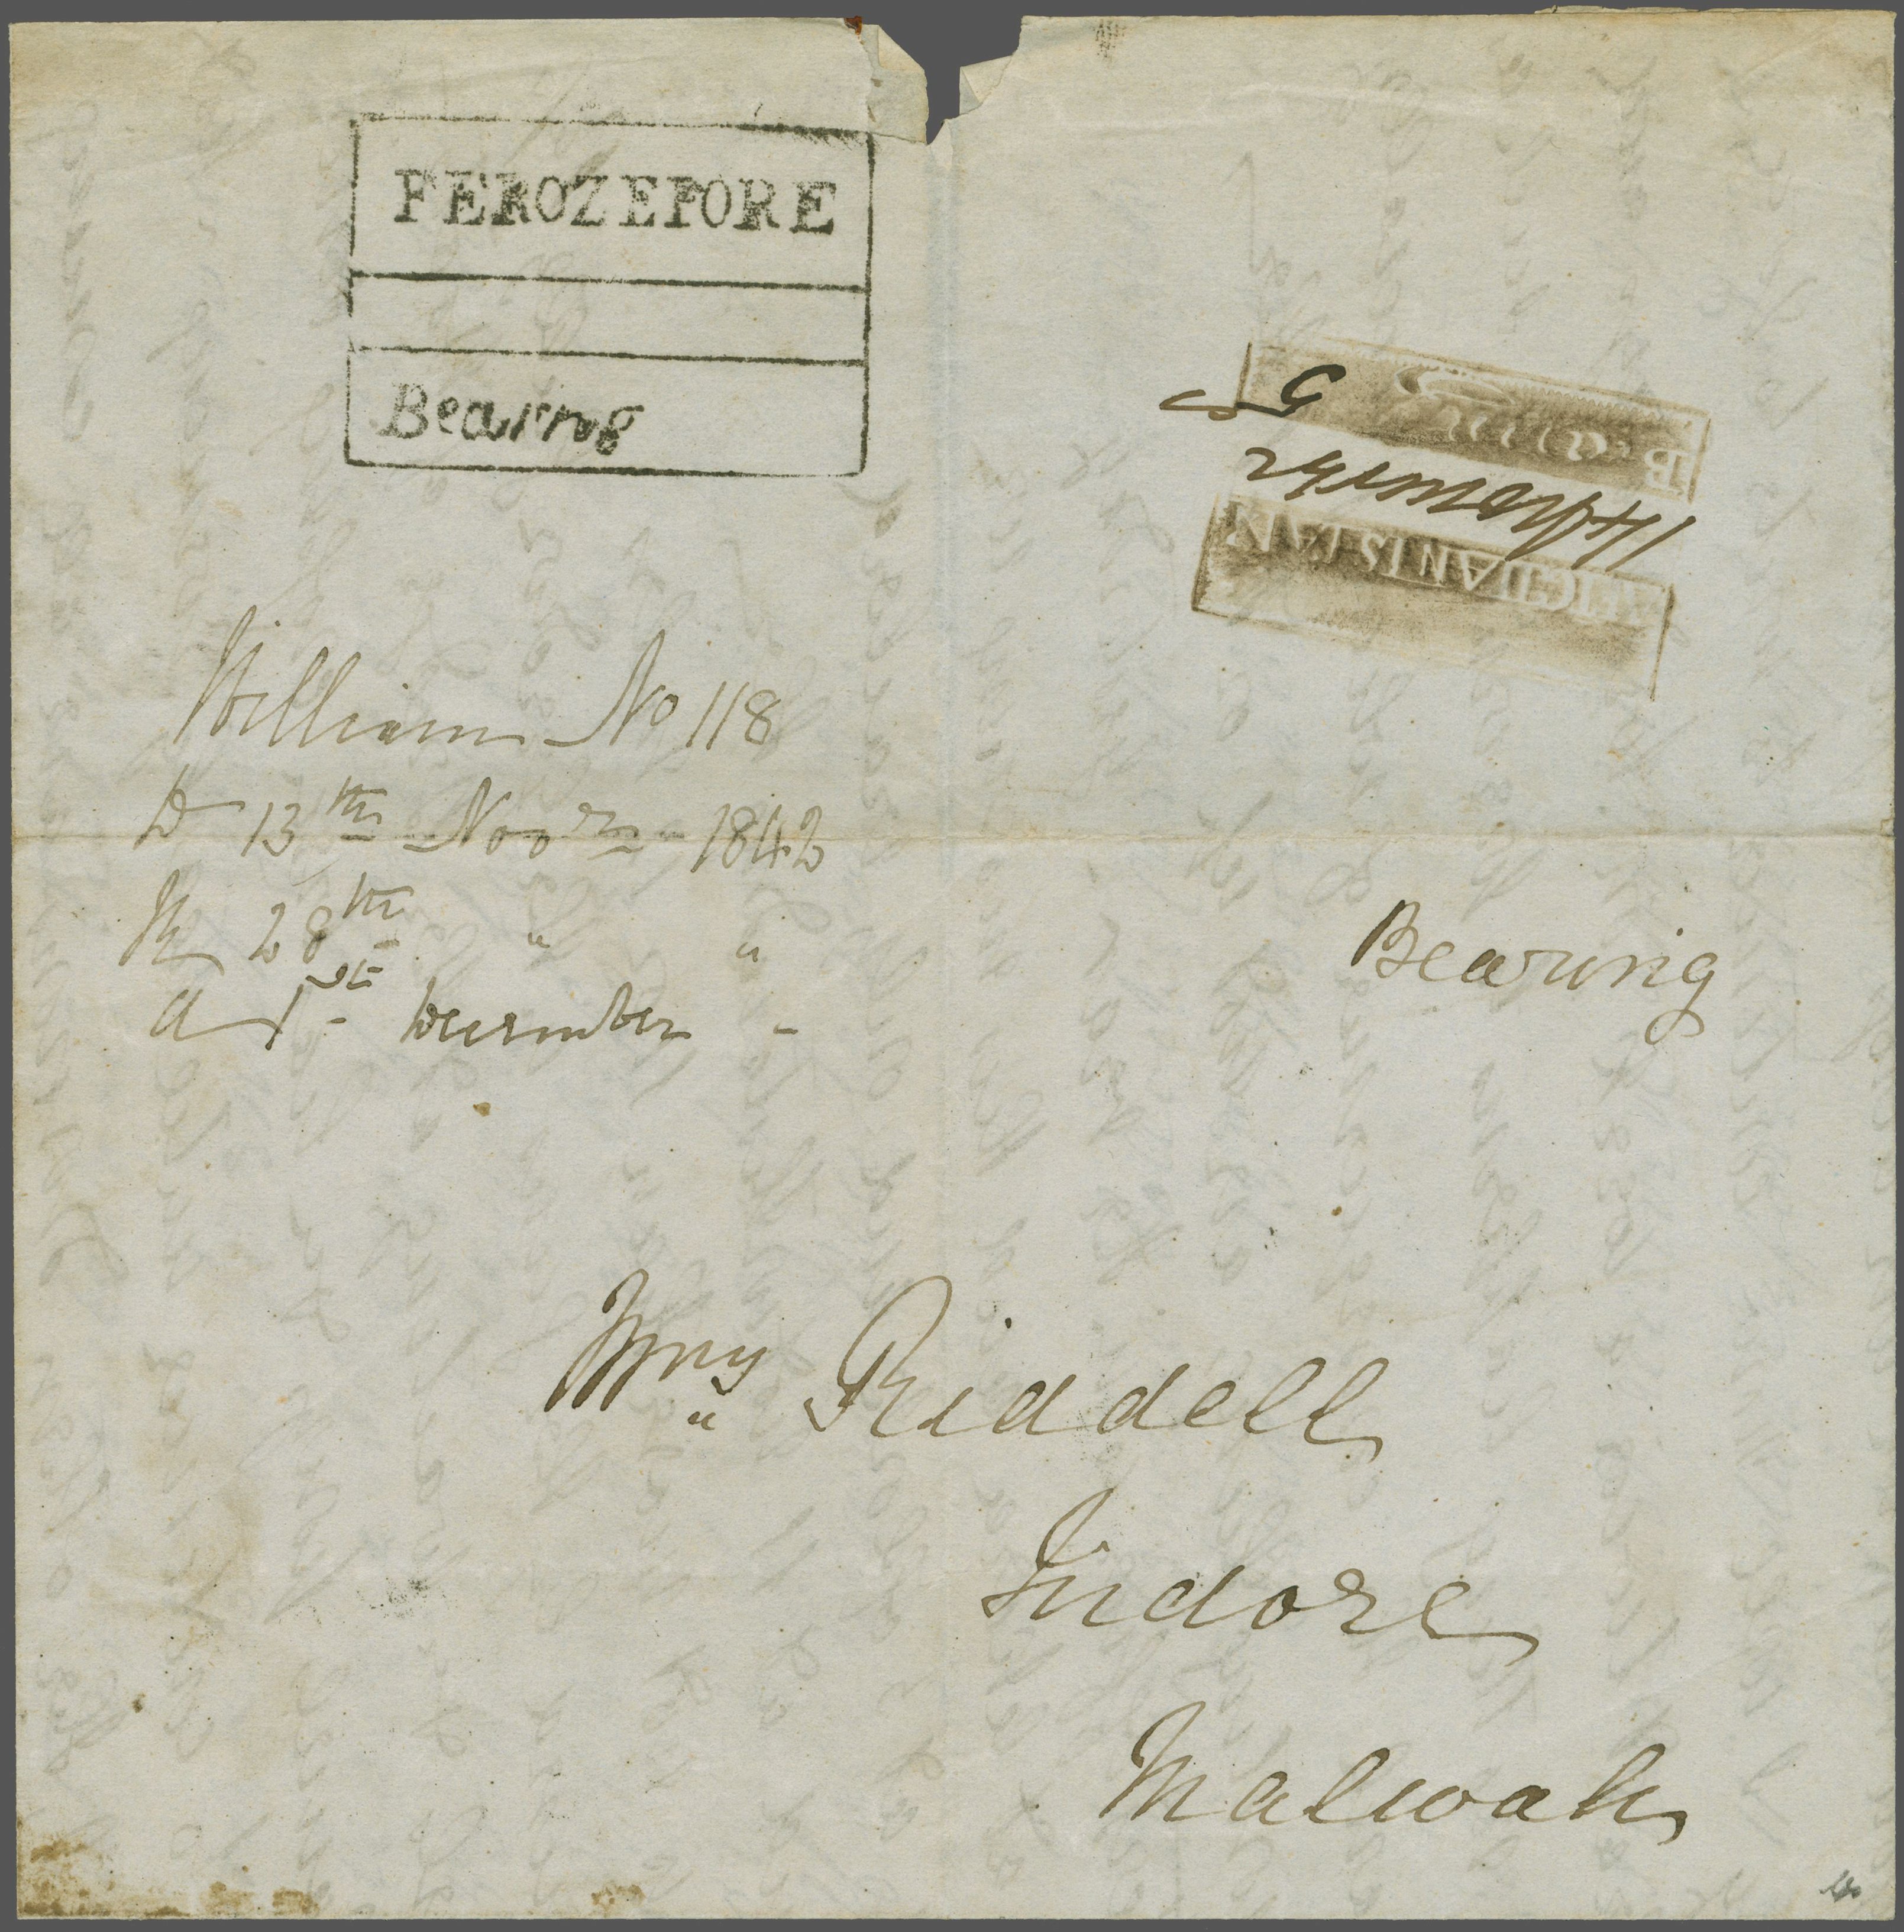 FEROZEPORE
Bearing
5
B
14 Novr 42
GHANISTAN
William No 118
D 13th Novr 1842
R 28th " "
a 1st December -
Bearing
Mrs Riddell
Indore
Malwah